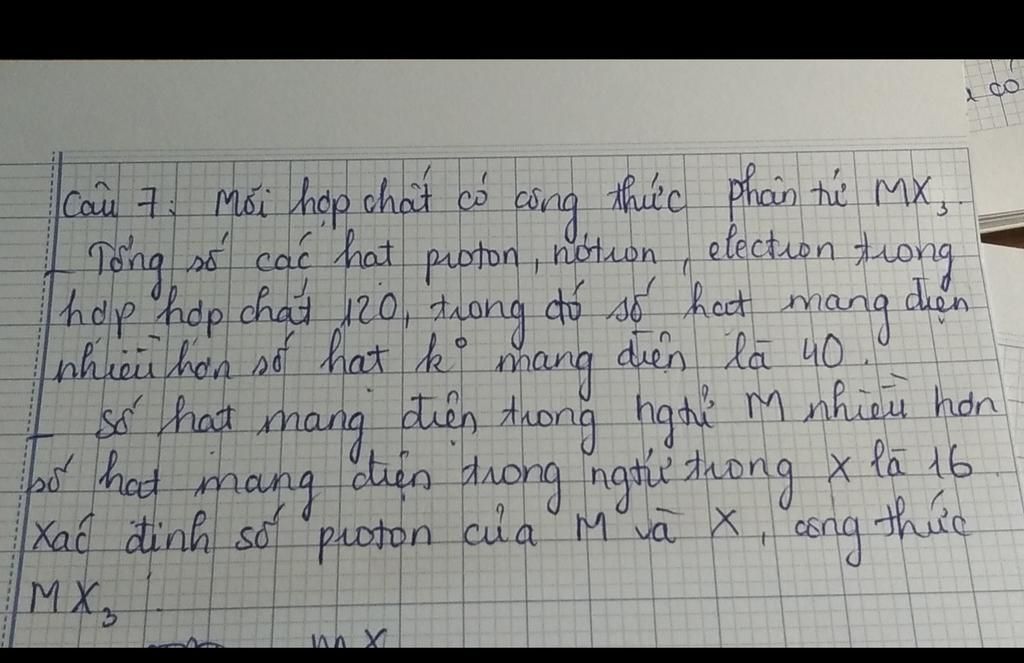 Câu 7: Mỗi hợp chất có công thức phân tử MX3.
- Tổng số các hạt proton, nơtron, electron trong
hợp hợp chất 120, trong đó số hạt mang điện
nhiều hơn số hạt ko mang điện là 40.
- Số hạt mang điện trong ngtử M nhiều hơn
số hạt mang điện trong ngtử trong X là 16
xác định số proton của M và X, công thức
MX3